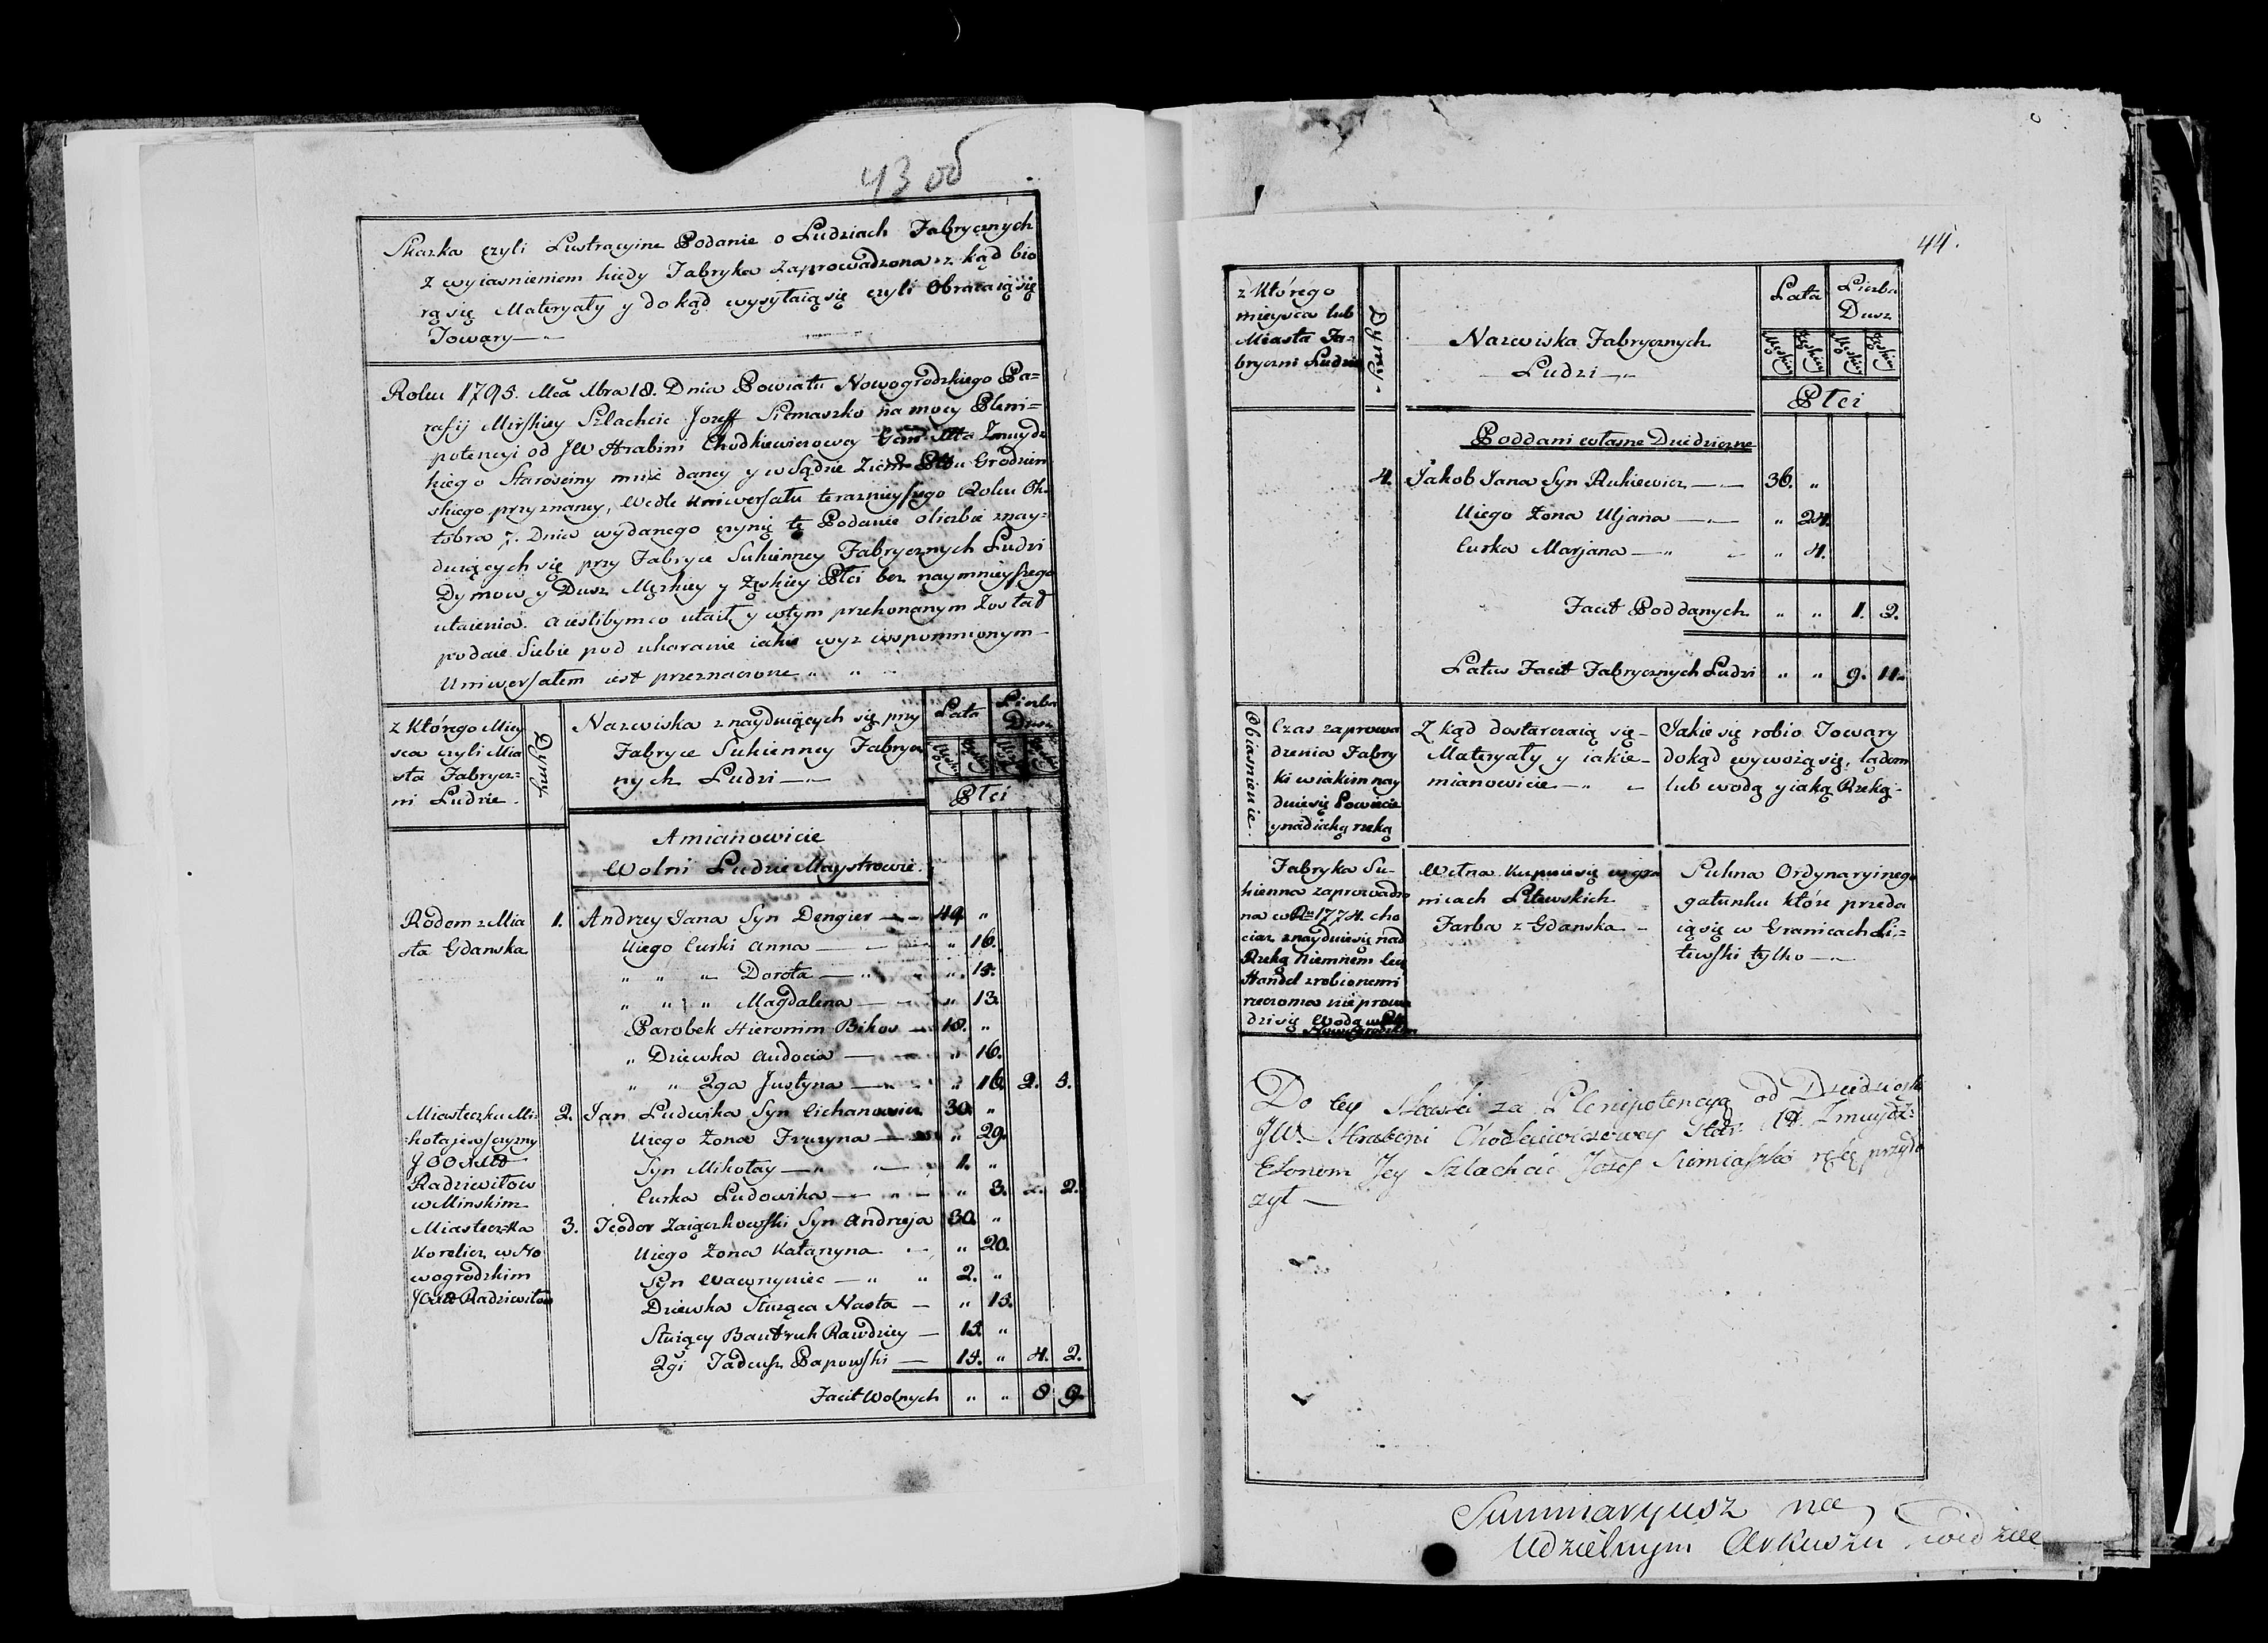 43 об
Skazka czyli Lustracyine Podanie o Ludziach Fabrycznych
z wyiasnieniem kiedy Fabryka Zaprowadzona z kąd bio
rą się Materyały y dokąd wysyłaią się czyli Obracaią się
Towary
Roku 1795. Mca Xbra 18. Dnia Powiatu Nowogrodzkiego Pa=
rafij Mirskiey Szlachcic Jozeff Siemaszko na mocy Pleni=
potencyi od JW Hrabini Chodkiewiczowey Żmuydz
kiego Starosciny mnie daney y w Sądzie Ziem Pttu Grodzien
skiego przyznaney, Wedle Uniwersału teraznieyszego Roku Ok=
tobra 7. Dnia wydanego czynię tę Podanie o liczbie znay=
duiących się przy Fabryce Sukienney Fabrycznych Ludzi
Dymow y Dusz Męskiey y Żęskiey Płci bez naymnieyszego
utaienia. a ieslibym co utaił y w tym przekonanym został
podaie Siebie pod ukaranie iakie wyz wspomnionym
Uniwersałem iest przeznaczone
z Którego Miey
sca czyli Mia
sta Fabrycz=
ni Ludzie
Dymy
Nazwiska znayduiących się przy
Fabryce Sukienney Fabrycz
nych Ludzi
Lata
Liczba
Dusz
Płci
A mianowicie
Wolni Ludzie Maystrowie
Rodem z Mia 1. Andrzey Jana Syn Dengier 49. "
sta Gdanska Uiego Curki Anna " 16.
" " " Dorota " 15.
" " " Magdalena " 13.
Parobek Hieronim Bikos 18. "
" Dziewka Audocia " 16.
" " 2ga Justyna " 16. 2. 5.
Miasteczka Mi= 2. Jan Ludwika Syn Cichanowicz 30. "
kołajewszczyzny Uiego Żona Fruzyna " 29.
Syn Mikołay 1. "
Radziwiłow Curka Ludowika " 3. 2. 2.
w Minskim
Miasteczka 3. Teodor Zaiączkowski Syn Andrzeja 30. "
Korelicz w No Uiego Żona Katarzyna " 20.
wogrodzkim Syn Wawrzyniec 2. "
Radziwiłow Dziewka Służąca Nasta " 15.
Służący Bautruk Rawdziey 15. "
2gi Tadeusz Papowski 14. " 4. 2.
Facit Wolnych " " 8 9.
44.
z Którego
mieysca lub
Miasta Fa=
bryczni Ludzie
Dymy
Nazwiska Fabrycznych
Ludzi
Lata
Liczba
Dusz
Męskiey
Żęskiey
Męskiey
Żęskiey
Płci
Poddani własne Dziedziczne
4. Jakob Jana Syn Rukiewicz 36. "
Uiego Żona Uljana " 24.
Curka Marjana " 4.
Facit Poddanych " " 1. 2.
Latus Facit Fabrycznych Ludzi " " 9. 11.
Obiasnienie
Czas zaprowa
dzenia Fabry
ki w iakim nay
duie się Powiecie
y nad iaką rzeką
Z kąd dostarczaią się
Materyały y iakie
mianowicie
Jakie się robio Towary
dokąd wywożą się, lądem
lub wodą y iaką Rzeką
Fabryka Su=
kienna zaprowadzo
na w Ru 1774. cho
ciaz znayduie się nad
Rzeką Niemnem lecz
Handel zrobionemi
rzeczoma nie prowa
dzi się Wodą w Pttie
Nowogrodzkim
Wełna Kupuie się w gra
nicach Litewskich
Farba z Gdanska
Sukna Ordynaryinego
gatunku które przeda
ią się w Granicach Li=
tewski tylko
Do tey Skaski za Plenipotencyą od Dziedziczki
JW. Hrabini Chodkiewiczowey Star. Xa. Żmuydz:
Ekonom Jey Szlachcic Jozef Siemiaszko rękę przyło
żył
Summaryusz na
Udzielnym Arkuszu widziec